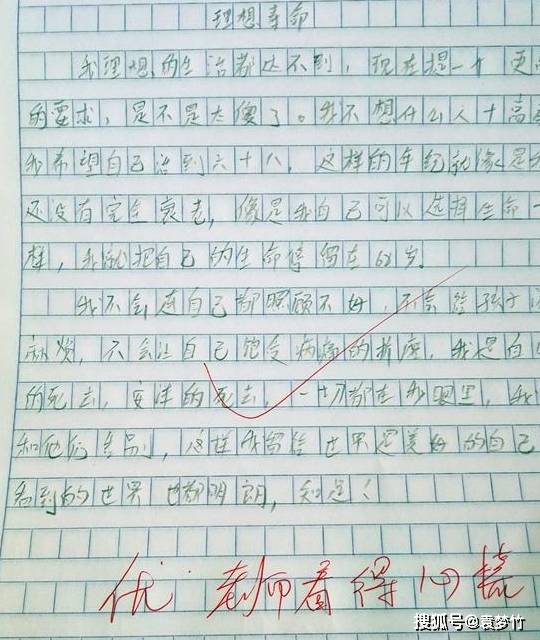 理想寿命
我理想的生活都达不到，现在提一个更
的要求，是不是太傻了。我不想什么人十高
我希望自己活到六十八，这样的年纪就像是
还没有完全衰老，像是我自己可以选择生命一
样，我就把自己的生命停留在68岁。
我不会连自己都照顾不好，不会给孩子
麻烦，不会让自己饱受病痛的折磨，我是自
的死去，安详的死去，一切都在我眼里，我
和他们告别，这样我留给世界是美好的自己
看到的世界也都明朗，知足！
优 老师看得心慌
搜狐号@袁梦竹